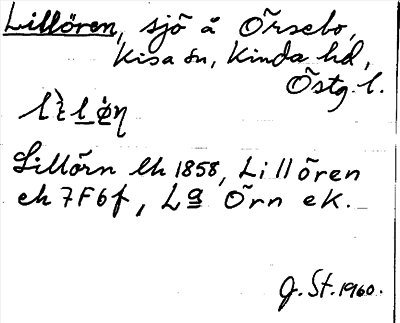 Lillören, sjö å Örsebo,
Kisa sn, Kinda hd,
Östg. l.
Lillörn lk 1858, Lillören
ek 7F6f, La Örn ek.
G. St. 1960.